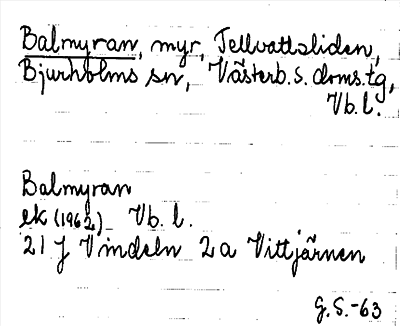 Balmyran, myr, Tellvattsliden,
Bjurholms sn, Västerb. s. doms. tg,
Vb. l.
Balmyran
ek (1962) Vb. l.
21 J Vindeln 2a Vittjärnen
G. S. -63